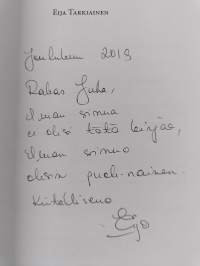 EIJA TARKIAINEN
Joulukuu 2013
Rakas Juha,
ilman sinua
ei olisi tätä kirjaa,
ilman sinua
olisin puoli-nainen.
Kiitollisena
Eija